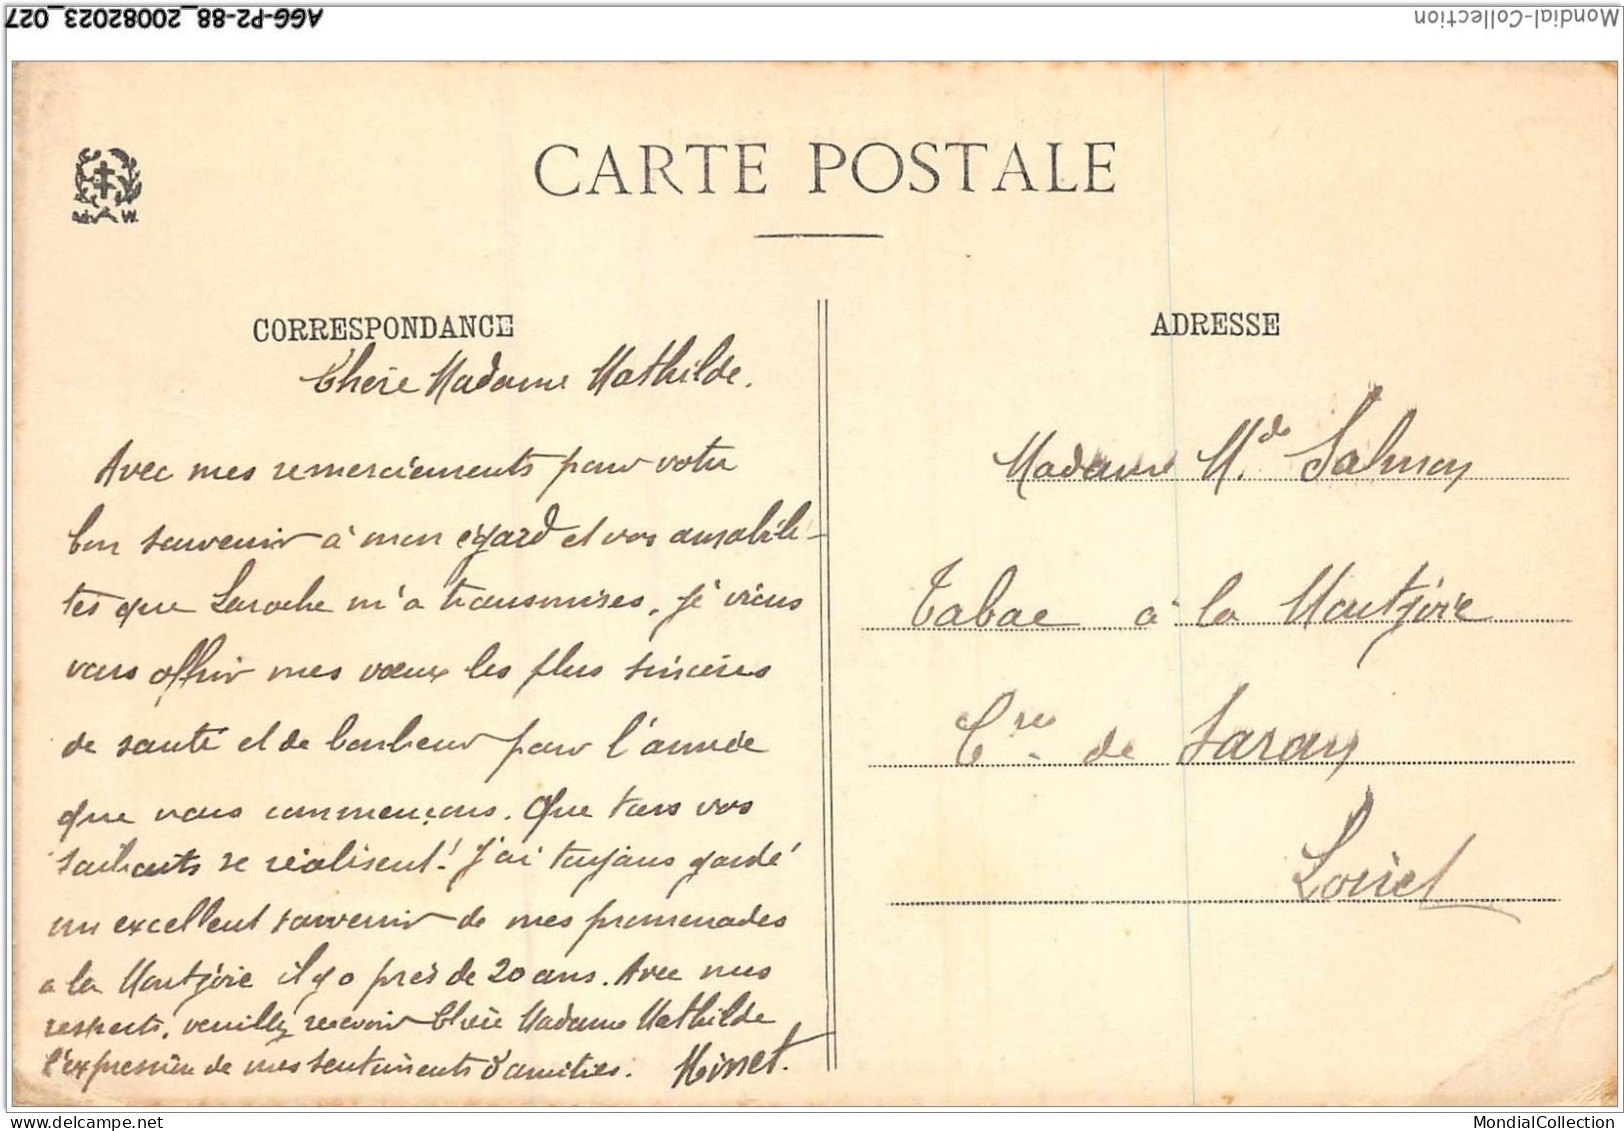 AGG-P2-88_20082023_027
Mondial-Collection
CARTE POSTALE
W.
CORRESPONDANCE
Chère Madame Mathilde.
Avec mes remerciements pour votre
bon souvenir à mon égard et vos amabili-
tés que Laroche m'a transmises, je viens
vous offrir mes vœux les plus sincères
de santé et de bonheur pour l'année
que nous commençons. Que tous vos
souhaits se réalisent! J'ai toujours gardé
un excellent souvenir de mes promenades
a la Montjoie il y a près de 20 ans. Avec mes
respects, veuillez recevoir Chère Madame Mathilde
l'expression de mes sentiments d'amitiés. Minet.
ADRESSE
Madame M.de Salmon
Tabac à la Montjoie
Cne de Saran
Loiret
MondialCollection
MondialCollection